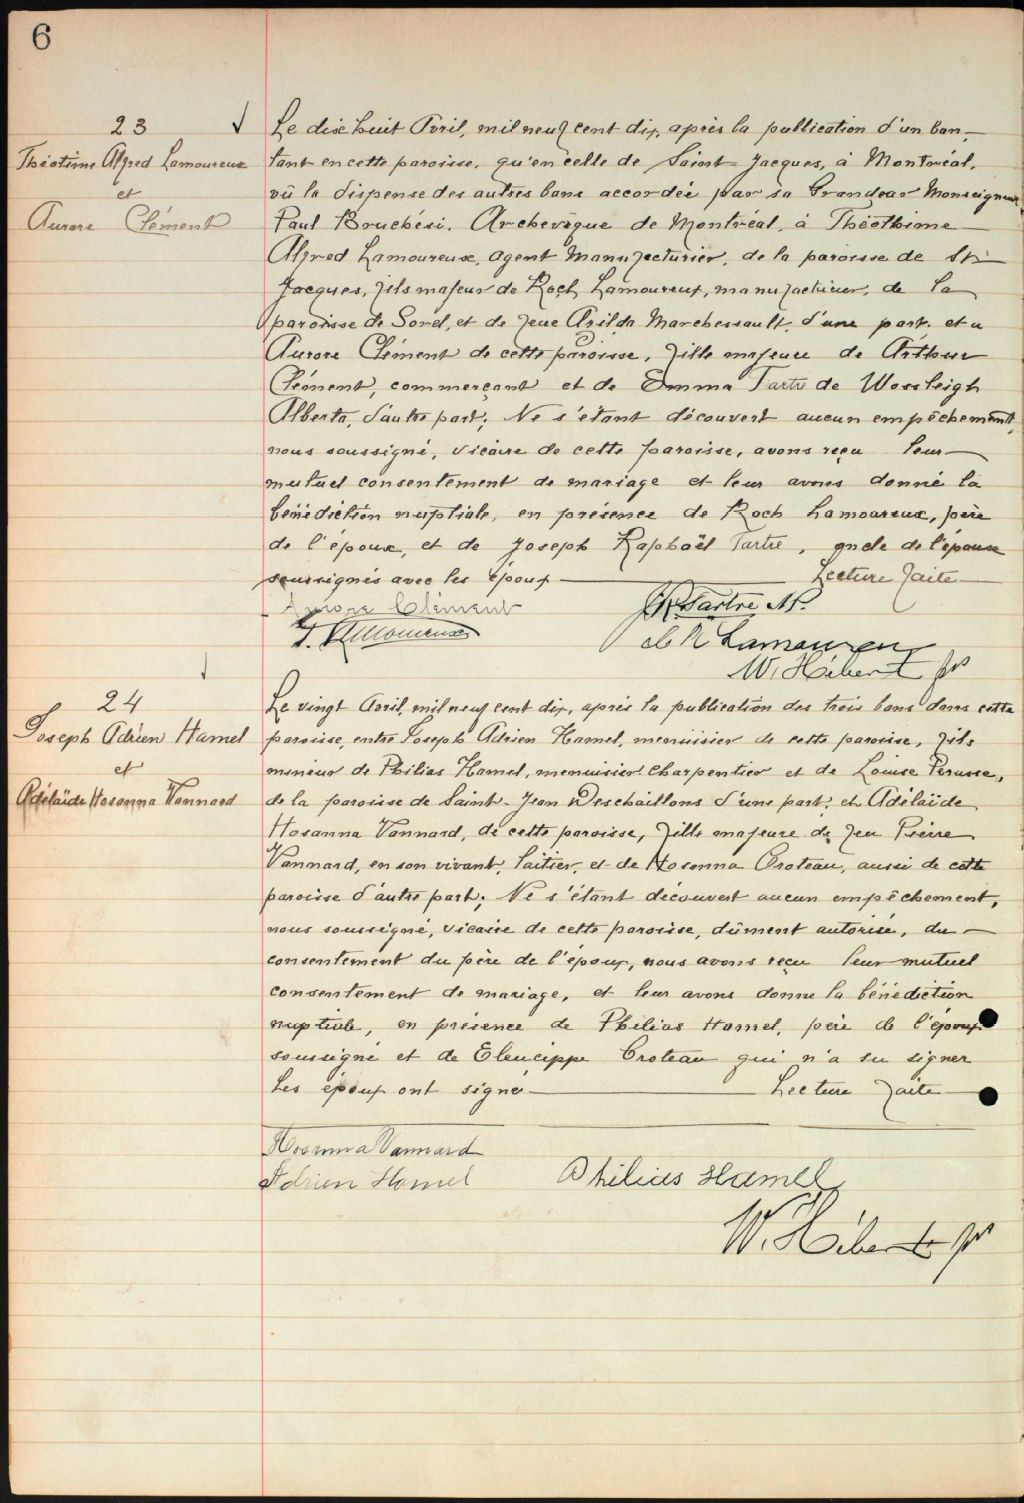 6
23
Théotime Alfred Lamoureux
et
Aurore Clément
Le dix huit Avril, mil neuf cent dix, après la publication d'un ban,
tant en cette paroisse, qu'en celle de Saint Jacques, à Montréal,
vû la dispense des autres bans accordée par sa Grandeur Monseigneur
Paul Bruchési, Archevêque de Montréal, à Théothime
Alfred Lamoureux, agent manufacturier, de la paroisse de St
Jacques, fils majeur de Roch Lamoureux, manufacturier, de la
paroisse de Sorel, et de feue Exilda Marchessault, d'une part, et à
Aurore Clément de cette paroisse, fille majeure de Arthur
Clément, commerçant et de Emma Tartre de
Alberta, d'autre part; Ne s'étant découvert aucun empêchement,
nous soussigné, vicaire de cette paroisse, avons reçu leur
mutuel consentement de mariage et leur avons donné la
bénédiction nuptiale, en présence de Roch Lamoureux, père
de l'époux, et de Joseph Raphaël Tartre, oncle de l'épouse
soussignés avec les époux Lecture faite
Aurore Clément
J R Tartre N.P.
T. A. Lamoureux
R Lamoureux
W. Hébert ptr
24
Joseph Adrien Hamel
et
Adélaïde Hosanna Vannard
Le vingt Avril, mil neuf cent dix, après la publication des trois bans dans cette
paroisse, entre Joseph Adrien Hamel, menuisier de cette paroisse, fils
mineur de Philias Hamel, menuisier charpentier et de Louise Perusse,
de la paroisse de Saint-Jean Deschaillons d'une part; et Adélaïde
Hosanna Vannard, de cette paroisse, fille majeure de feu Pierre
Vannard, en son vivant, laitier, et de Hosanna Croteau, aussi de cette
paroisse d'autre part; Ne s'étant découvert aucun empêchement,
nous soussigné, vicaire de cette paroisse, dûment autorisé, du
consentement du père de l'époux, nous avons reçu leur mutuel
consentement de mariage, et leur avons donné la bénédiction
nuptiale, en présence de Philias Hamel, père de l'époux
soussigné et de Eleucippe Croteau qui n'a su signer
Les époux ont signé Lecture faite
Hosanna Vannard
Adrien Hamel
Philias Hamel
W. Hébert ptr